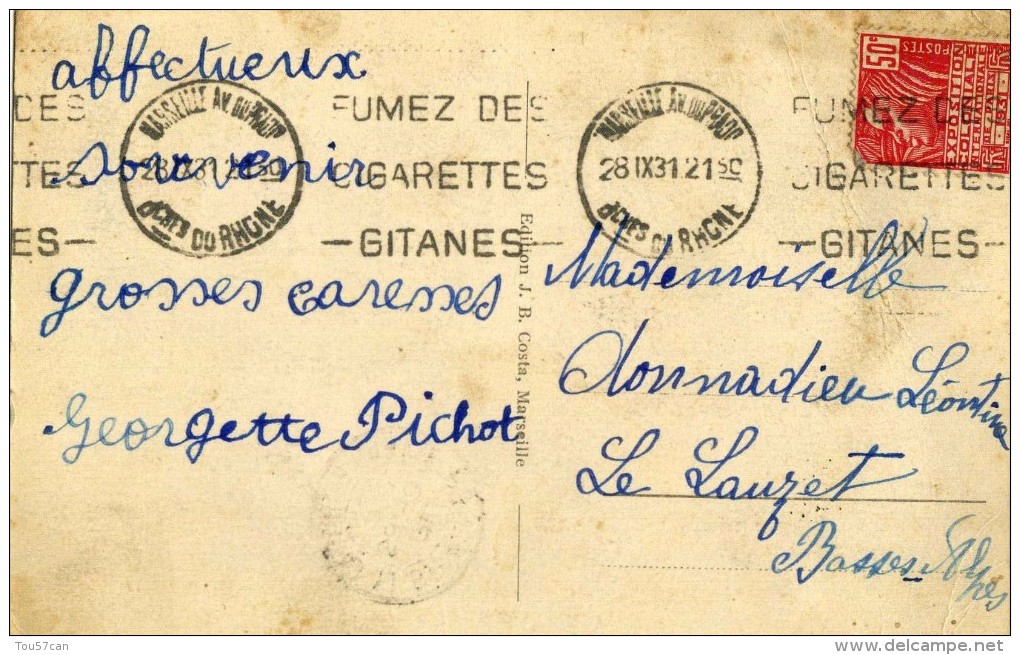 affectueux
souvenir
grosses caresses
Georgette Pichot
DES
TTES
ES—
MARSEILLE AV. DU PRADO
28 IX 31 21 50
BCHES DU RHONE
FUMEZ DES
CIGARETTES
—GITANES—
MARSEILLE AV. DU PRADO
28 IX 31. 21 50
BCHES DU RHONE
FUMEZ DES
CIGARETTES
—GITANES—
50c
POSTES
Edition J. B. Costa, Marseille
Mademoiselle
Donnadieu Léontine
Le Lauzet
Basses-Alpes
Tou57can
www.delcampe.net